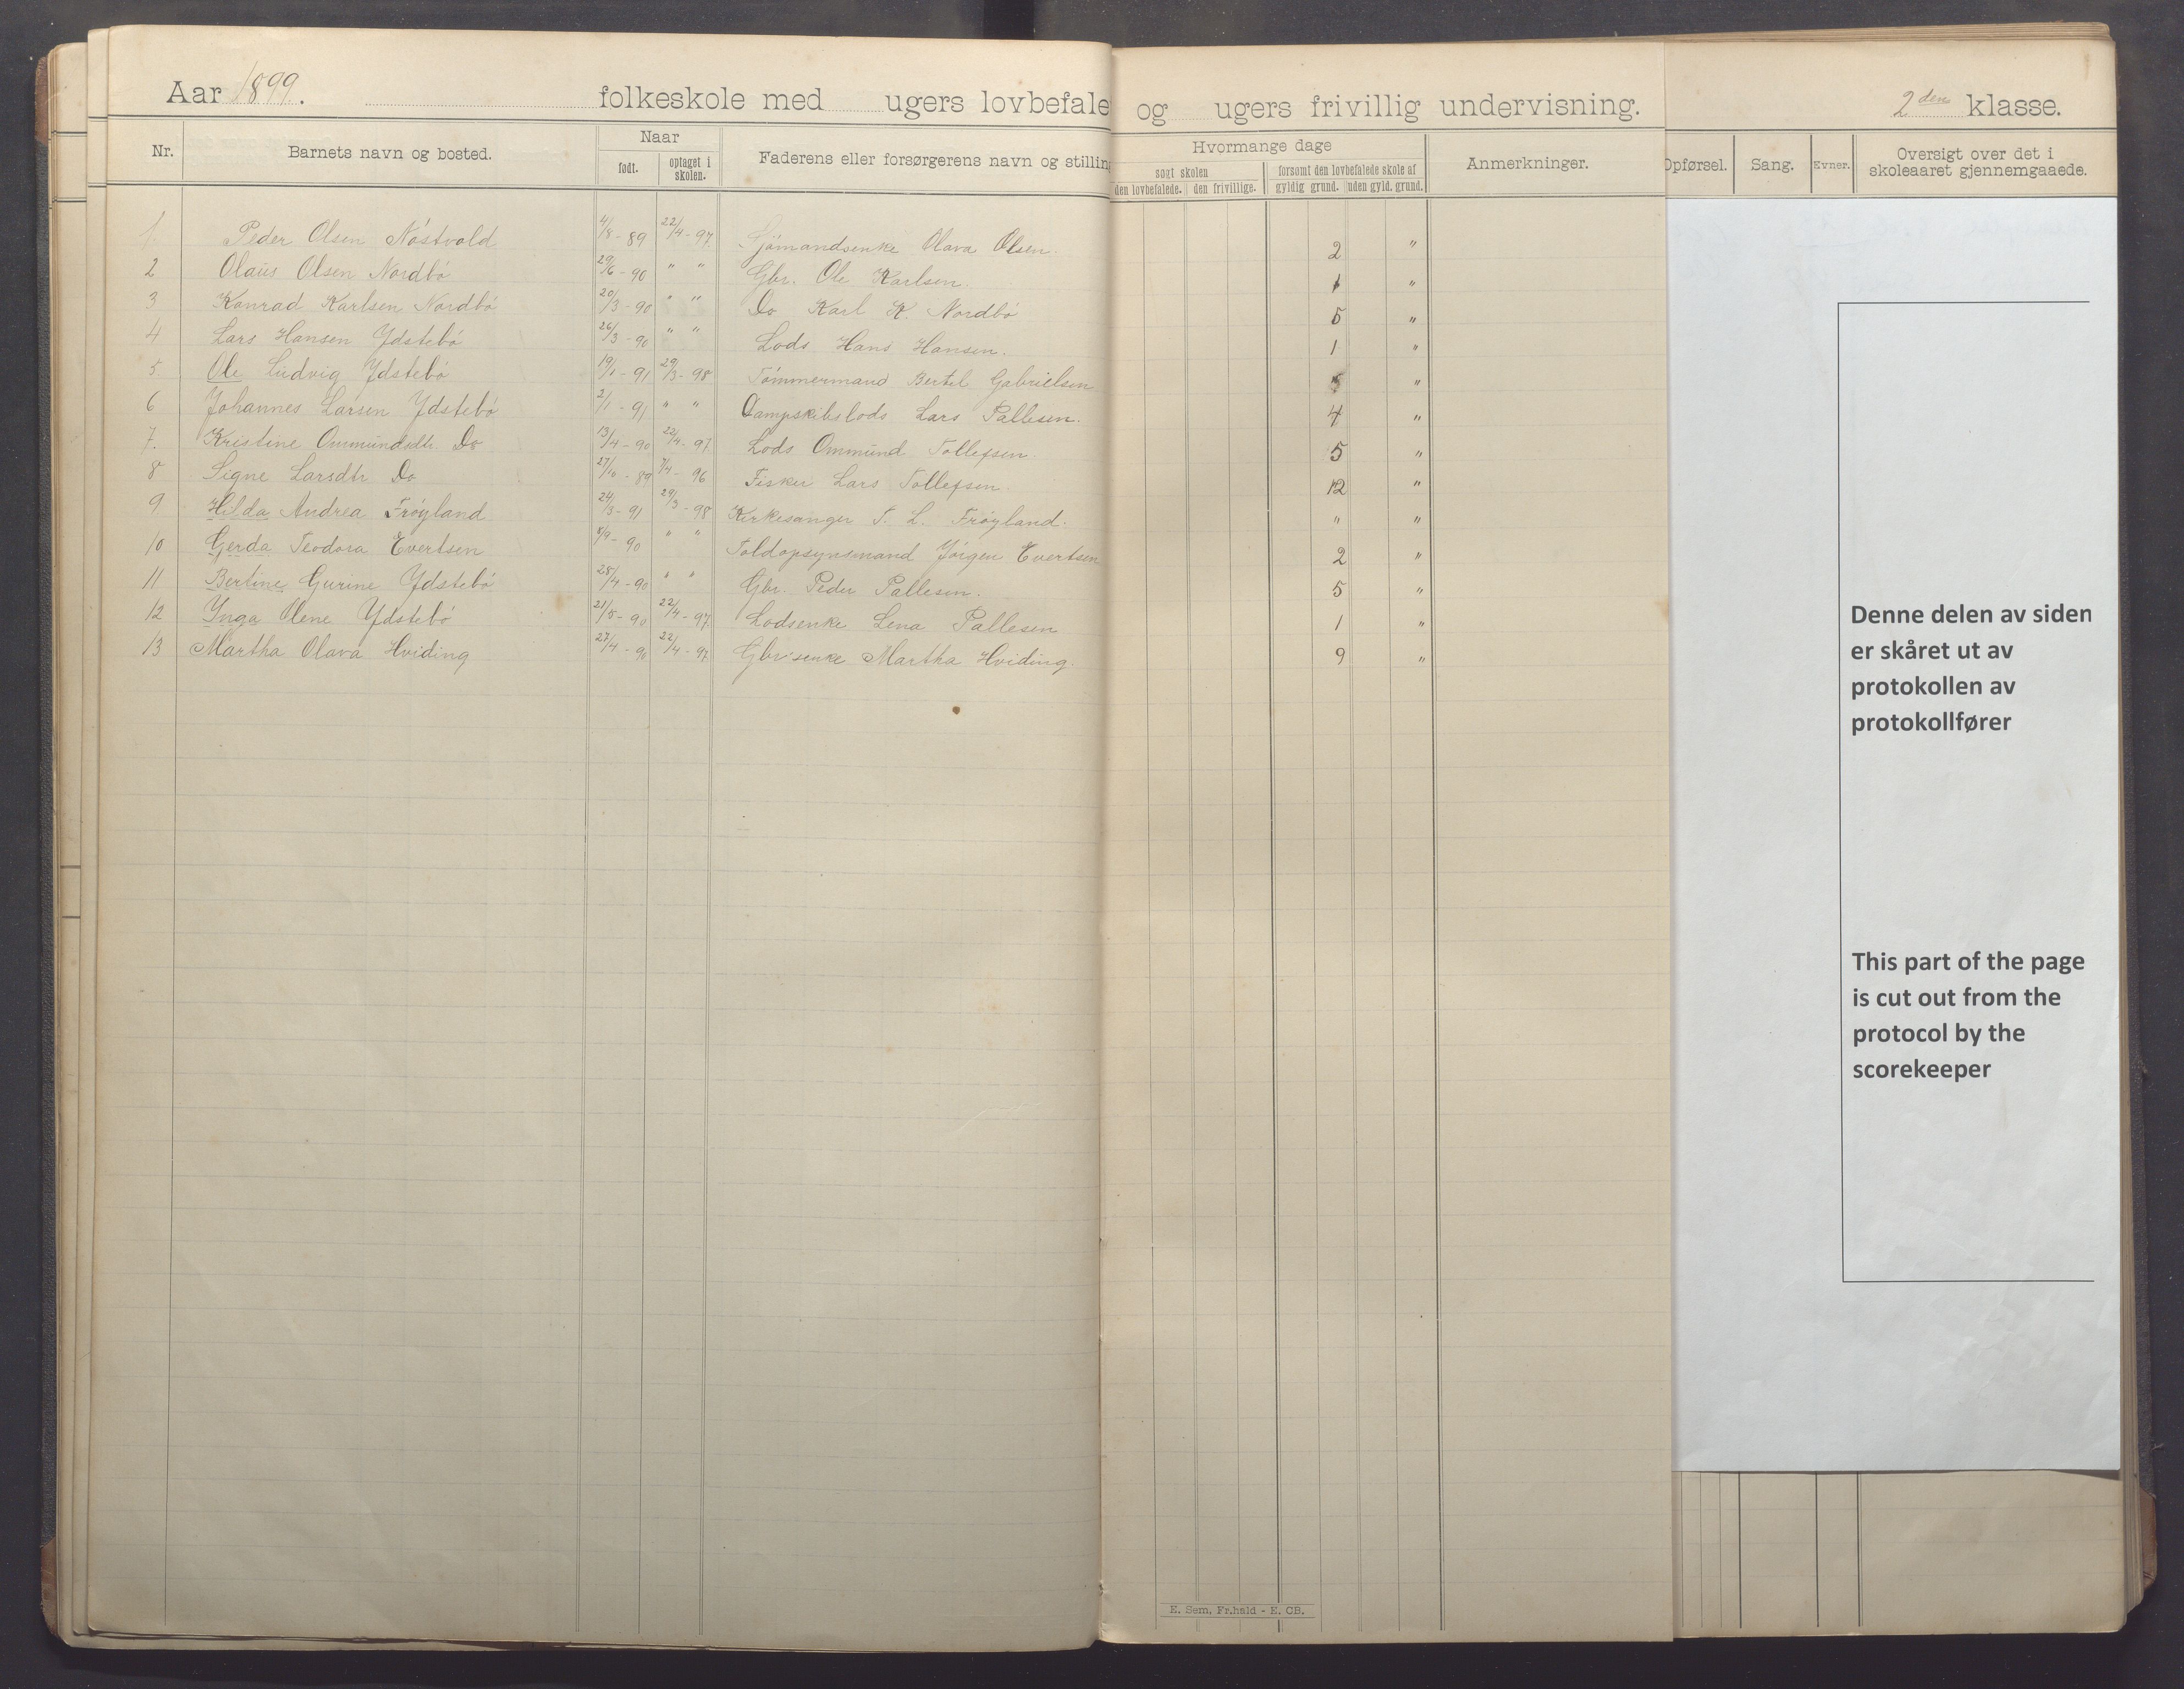 Aar 1899. folkeskole med ugers lovbefale og ugers frivillig undervisning. 2den klasse.
Nr. Barnets navn og bosted. Naar født. optaget i skolen. Faderens eller forsørgerens navn og stilling Hvormange dage søgt skolen den lovbefalede. den frivillige. forsømt den lovbefalede skole af gyldig grund. uden gyld. grund. Anmerkninger. Opførsel. Sang. Evner. Oversigt over det i skoleaaret gjennemgaaede.
1. Peder Olsen Nóstvold 4/8-89 22/4-97. Sjómandsenke Olava Olsen. 2 "
2 Olaus Olsen Nordbó 29/6-90 " " Gbr. Ole Karlsen. 1 "
3 Konrad Karlsen Nordbó 20/3-90 " " Do Karl K. Nordbó 5 "
4 Lars Hansen Ydstebó 26/3-90 " " Lods Hans Hansen. 1 "
5. Ole Ludvig Ydstebó 19/1-91 29/3-98 Tómmermand Bertel Gabrielsen "
6 Johannes Larsen Ydstebó 2/1-91 " " Dampskibslods Lars Pallesen. 4 "
7. Kristine Ommundsdtr. Do 13/4-90 22/4-97 Lods Ommund Tollefsen. 5 "
8 Signe Larsdtr Do 27/10-89 7/4-96 Fisker Lars Tollefsen. 12 "
9 Hilda Andrea Fróyland 24/3-91 29/3-98 Kirkesanger T. L. Fróyland. " "
10 Gerda Teodora Evertsen 8/9-90 " " Toldopsynsmand Jórgen Evertsen 2 "
11 Bertine Gurine Ydstebó 28/4-90 " " Gbr. Peder Pallesen. 5 "
12 Ynga Olene Ydstebó 21/5-90 22/4-97. Lodsenke Lena Pallesen 1 "
13 Martha Olava Hviding 27/4-90 22/4-97. Gbr'senke Martha Hviding. 9 "
E. Sem, Fr.hald - E. CB.
Denne delen av siden
er skåret ut av
protokollen av
protokollfører
This part of the page
is cut out from the
protocol by the
scorekeeper